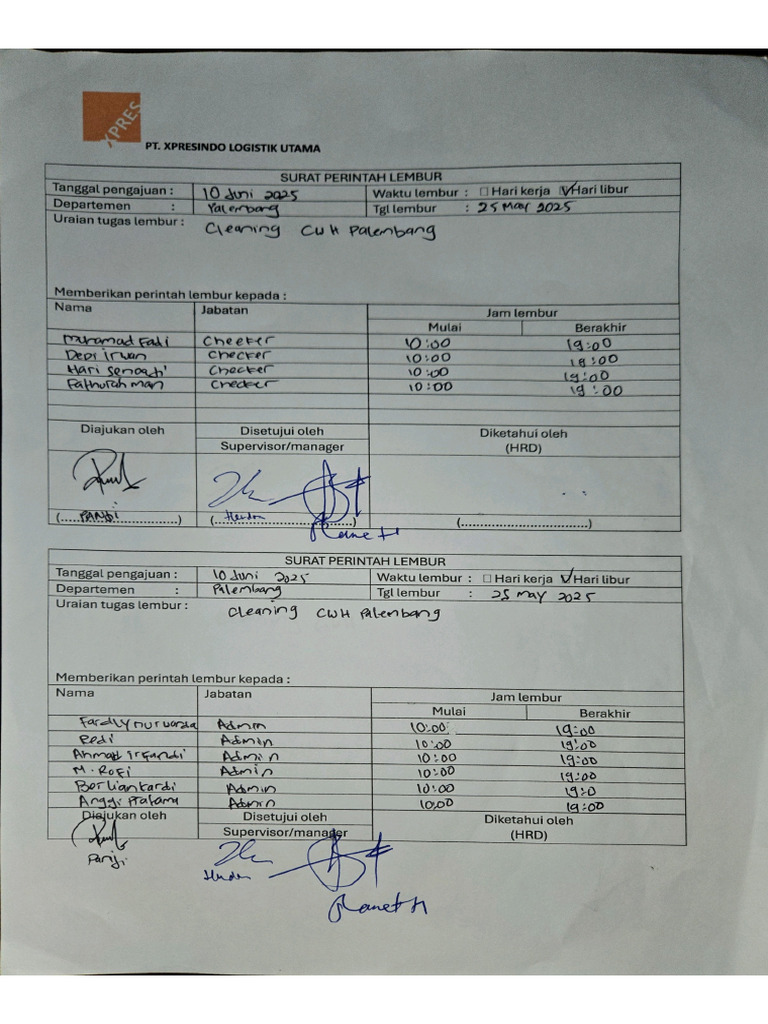 XPRES
PT. XPRESINDO LOGISTIK UTAMA
SURAT PERINTAH LEMBUR
Tanggal pengajuan : 10 Juni 2025 Waktu lembur : Hari kerja Hari libur
Departemen : Palembang Tgl lembur : 25 May 2025
Uraian tugas lembur : Cleaning CWH Palembang
Memberikan perintah lembur kepada :
Nama Jabatan Jam lembur
Mulai Berakhir
Muhamad Fadi Checker 10:00 19:00
Depi irwan Checker 10:00 19:00
Hari Senoadi Checker 10:00 19:00
Fathurahman Checker 10:00 19:00
Diajukan oleh Disetujui oleh Diketahui oleh
Supervisor/manager (HRD)
(....PANJI....) (....Hendra....) (....)
Slamet H
SURAT PERINTAH LEMBUR
Tanggal pengajuan : 10 Juni 2025 Waktu lembur : Hari kerja Hari libur
Departemen : Palembang Tgl lembur : 25 May 2025
Uraian tugas lembur : Cleaning CWH Palembang
Memberikan perintah lembur kepada :
Nama Jabatan Jam lembur
Mulai Berakhir
Fardly nur Admin 10:00 19:00
Pedi Admin 10:00 19:00
Ahmad irfandi Admin 10:00 19:00
M. Rofi Admin 10:00 19:00
Berliankardi Admin 10:00 19:0
Anggi Pratama Admin 10:00 19:00
Diajukan oleh Disetujui oleh Diketahui oleh
Supervisor/manager (HRD)
Panji
Slamet H